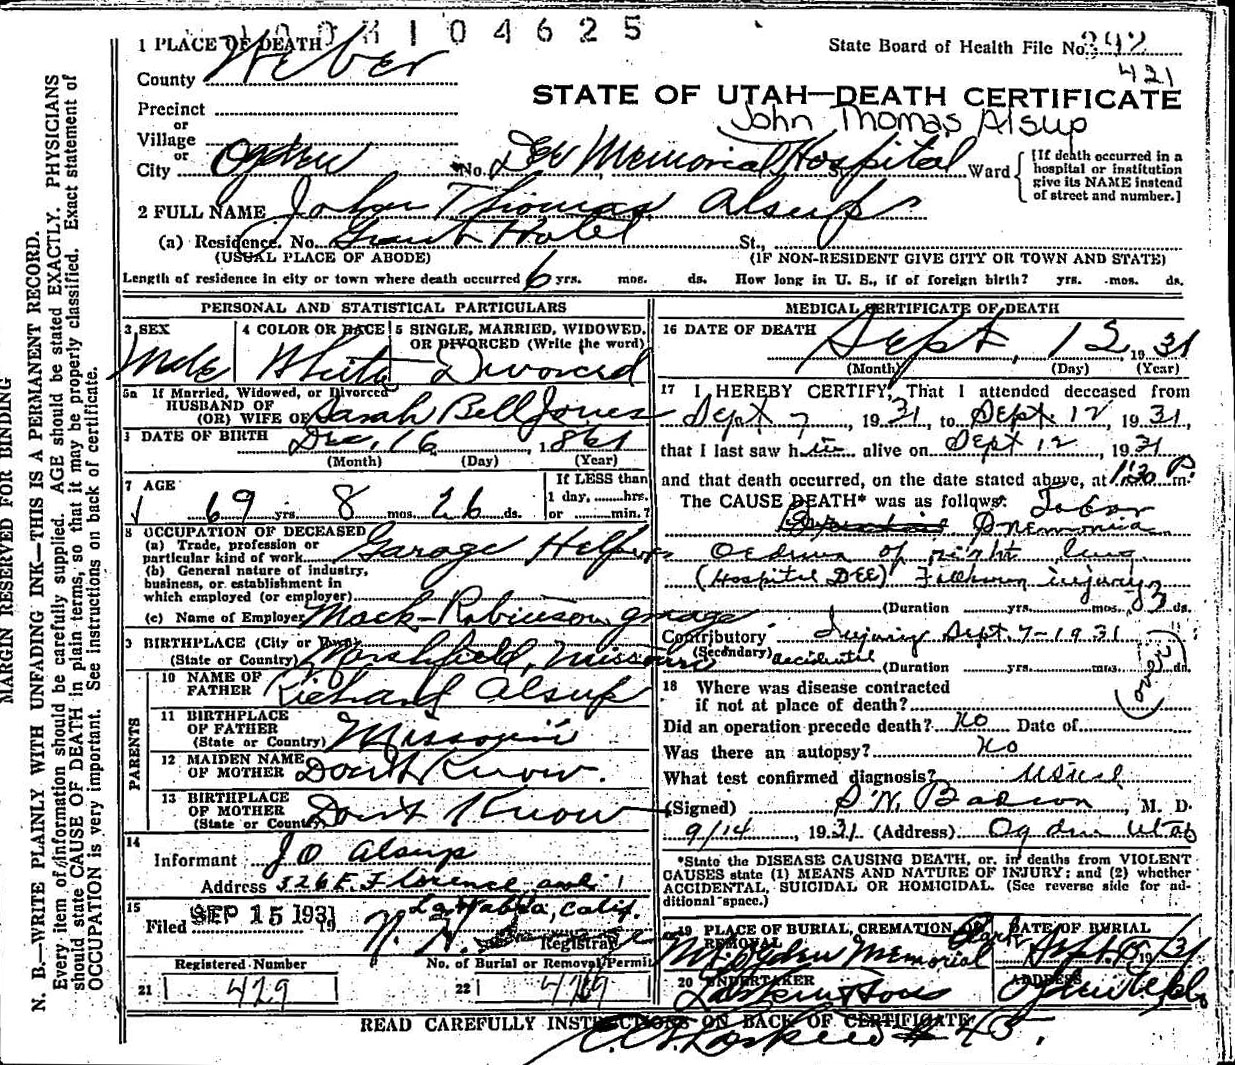 104625
1 PLACE OF DEATH
State Board of Health File No. 392
County Weber
421
STATE OF UTAH—DEATH CERTIFICATE
Precinct
or
John Thomas Alsup
Village
or
City Ogden No. Dee Memorial Hospital St., Ward
[If death occurred in a
hospital or institution
give its NAME instead
of street and number.]
2 FULL NAME John Thomas Alsup
(a) Residence. No. Grant Hotel St.,
(USUAL PLACE OF ABODE) (IF NON-RESIDENT GIVE CITY OR TOWN AND STATE)
Length of residence in city or town where death occurred 6 yrs. mos. ds. How long in U. S., if of foreign birth? yrs. mos. ds.
PERSONAL AND STATISTICAL PARTICULARS
3 SEX
Male
4 COLOR OR RACE
White
5 SINGLE, MARRIED, WIDOWED,
OR DIVORCED (Write the word)
Divorced
5a If Married, Widowed, or Divorced
HUSBAND OF
(OR) WIFE OF Sarah Bell Jones
DATE OF BIRTH Dec, 16, 1861
(Month) (Day) (Year)
7 AGE
69 yrs. 8 mos. 26 ds.
If LESS than
1 day, hrs.
or min.?
8 OCCUPATION OF DECEASED
(a) Trade, profession or
particular kind of work Garage Helper
(b) General nature of industry,
business, or establishment in
which employed (or employer)
(c) Name of Employer Mack-Robinson garage
9 BIRTHPLACE (City or Town)
(State or Country) Marshfield, Missouri
PARENTS
10 NAME OF
FATHER Richard Alsup
11 BIRTHPLACE
OF FATHER
(State or Country) Missouri
12 MAIDEN NAME
OF MOTHER Don't Know.
13 BIRTHPLACE
OF MOTHER
(State or Country) Don't Know
14
Informant J O Alsup
Address 326 E. Florence ave
La Habra, Calif.
15
Filed SEP 15 1931 19
N. H.
Registrar
Registered Number
21 429
No. of Burial or Removal Permit
22 429
MEDICAL CERTIFICATE OF DEATH
16 DATE OF DEATH
Sept, 12 1931
(Month) (Day) (Year)
17 I HEREBY CERTIFY, That I attended deceased from
Sept 7, 1931, to Sept 12, 1931,
that I last saw him alive on Sept 12, 1931
and that death occurred, on the date stated above, at 1:30 P. m.
The CAUSE DEATH* was as follows: Lobar
Pnemonia
Oedema of right lung
(Hospital DEE) Following injury
(Duration yrs. mos. 3 ds.
Contributory Injury Sept 7-1931
(Secondary) accidental
(Duration yrs. mos. ds.
(over)
18 Where was disease contracted
if not at place of death?
Did an operation precede death? No Date of
Was there an autopsy? No
What test confirmed diagnosis? usual
(Signed) , M. D.
9/14, 1931 (Address) Ogden Utah
*State the DISEASE CAUSING DEATH, or, in deaths from VIOLENT
CAUSES state (1) MEANS AND NATURE OF INJURY; and (2) whether
ACCIDENTAL, SUICIDAL OR HOMICIDAL. (See reverse side for ad-
ditional space.)
19 PLACE OF BURIAL, CREMATION, OR
REMOVAL
Mt. Ogden Memorial Park
DATE OF BURIAL
Sept. 15 1931
20 UNDERTAKER
Larkin & Sons
ADDRESS
Ogden Utah
READ CAREFULLY INSTRUCTIONS ON BACK OF CERTIFICATE
Larkin # 45.
MARGIN RESERVED FOR BINDING
N. B.—WRITE PLAINLY WITH UNFADING INK—THIS IS A PERMANENT RECORD.
Every item of information should be carefully supplied. AGE should be stated EXACTLY. PHYSICIANS
should state CAUSE OF DEATH in plain terms, so that it may be properly classified. Exact statement of
OCCUPATION is very important. See instructions on back of certificate.